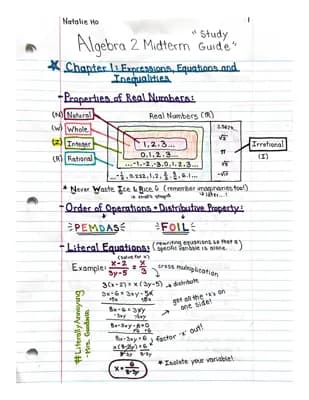 Natalie Ho
1
Algebra 2 Midterm "Study Guide"
Chapter 1: Expressions, Equations and
Inequalities
- Properties of Real Numbers:
Real Numbers (ℝ)
(N) Natural
(W) Whole
(Z) Integer
(R) Rational
1, 2, 3...
0, 1, 2, 3...
...-2, -3, 0, 1, 2, 3...
√2
π
√3
Irrational
(I)
* Never Waste Ice & Rice ☺ (remember imaginaries too!)
in small steps
later...!
- Order of Operations + Distributive Property:
PEMDAS
FOIL
- Literal Equations: (rewriting equations so that a
specific variable is alone.)
(solve for x)
Example: x-2/3y-5 = x/3
cross multiplication
3(x-2) = x(3y-5) → distribute
3x-6 = 3xy-5x
+5x +5x
8x-6 = 3xy
-3xy -3xy
get all the "x's on
one side!
8x-3xy-6=0
+6 +6
8x-3xy=6
factor 'x' out!
x(8-3y)=6
8-3y 8-3y
x = 6/8-3y
* Isolate your variable!
#LiterallyAnnoying
-Mrs. Goodwin